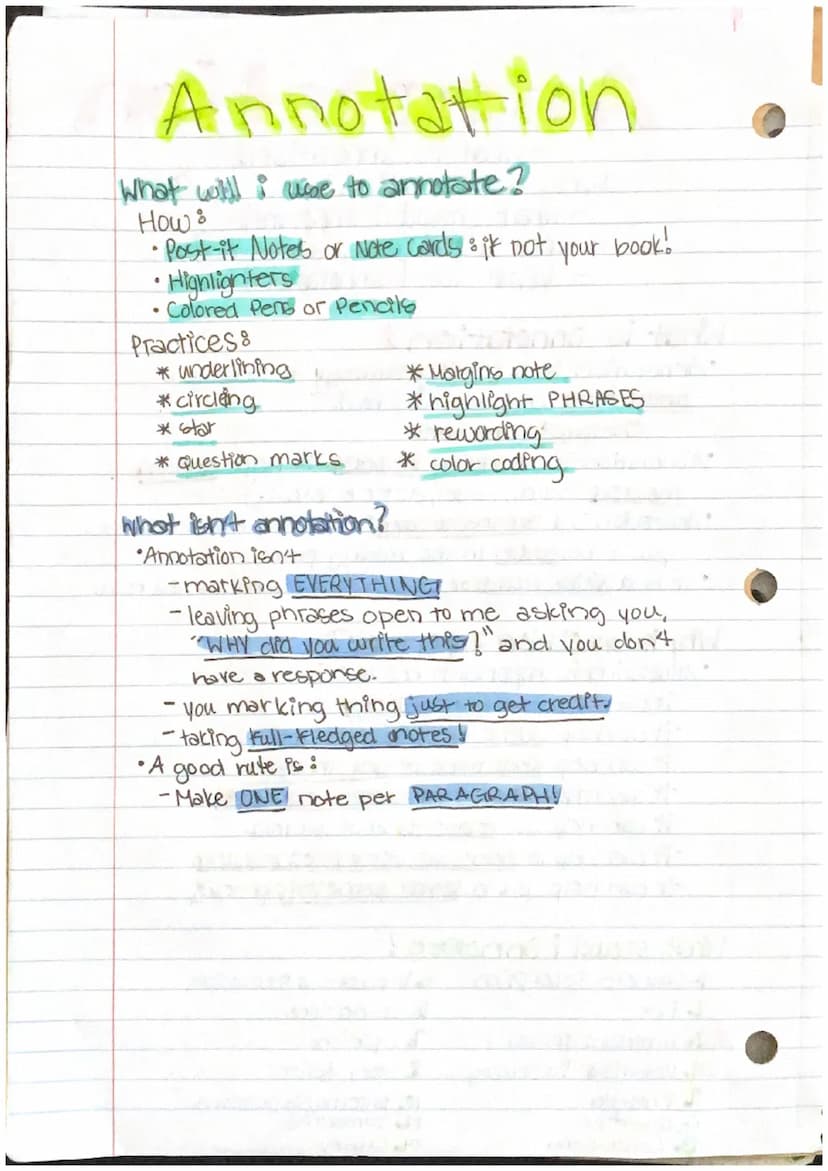 Annotation
What will i use to annotate?
How:
• Post-it Notes or Note Cards : if not your book!
• Highlighters
• Colored Pens or Pencils
Practices:
* underlining * Margins note
* circling * highlight PHRASES
* star * rewording
* question marks * color coding
What isn't annotation?
• Annotation isn't
- marking EVERYTHING
- leaving phrases open to me asking you,
"WHY did you write this?" and you don't
have a response.
- you marking thing just to get credit.
- taking full-fledged notes!
• A good rule is:
- Make ONE note per PARAGRAPH!